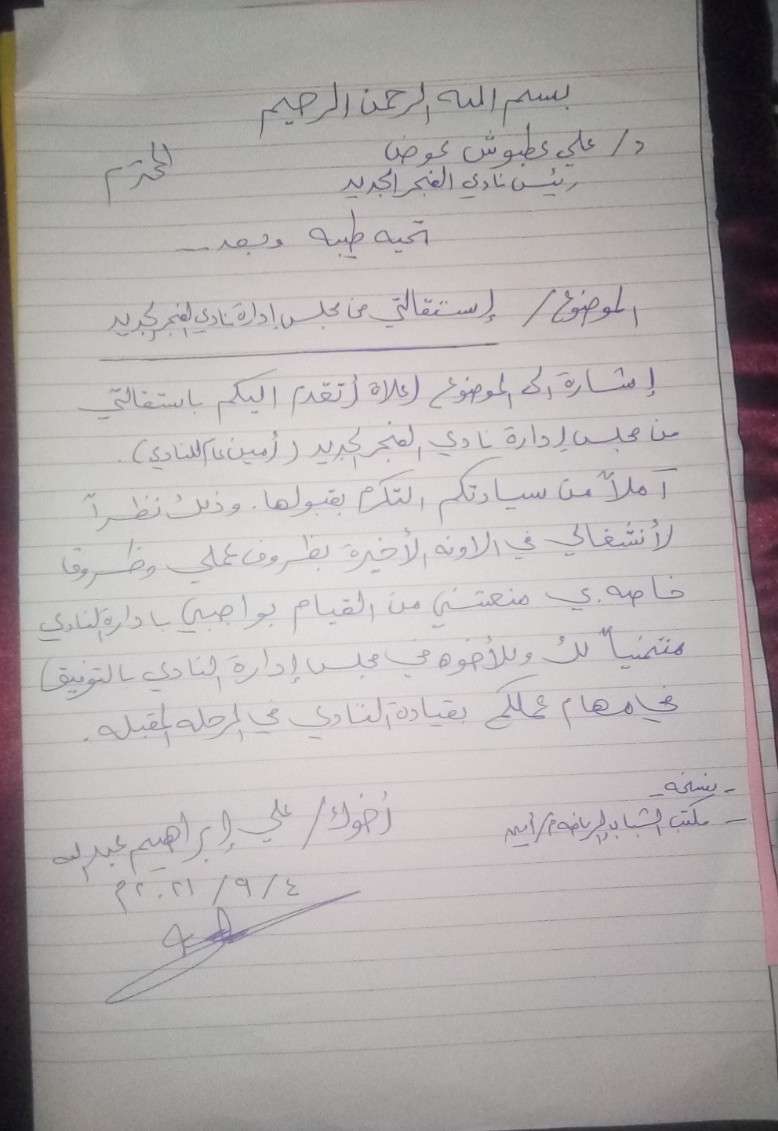 بسم الله الرحمن الرحيم
د/ علي عطبوش عوض المحترم
رئيس نادي الفجر الجديد
تحيه طيبه وبعد ...
الموضوع/ إستقالتي من مجلس إدارة نادي الفجر الجديد
إشارة الى الموضوع أعلاة أتقدم اليكم باستقالتي
من مجلس إدارة نادي الفجر الجديد (أمين عام للنادي).
آملاً من سيادتكم التكرم بقبولها. وذلك نظراً
لأنشغالي في الاونه الأخيرة بظروف عملي وظروف
خاصه بي منعتني من القيام بواجبي بادارة النادي
متمنياً لك وللأخوه في مجلس إدارة النادي بالتوفيق
في مهام عملكم بقيادة النادي في المرحله المقبله.
- نسخه -
- مكتب الشباب والرياضه م/أبين
أخوك/ علي إبراهيم عبدالله
٤/٩/٢٠٢١م